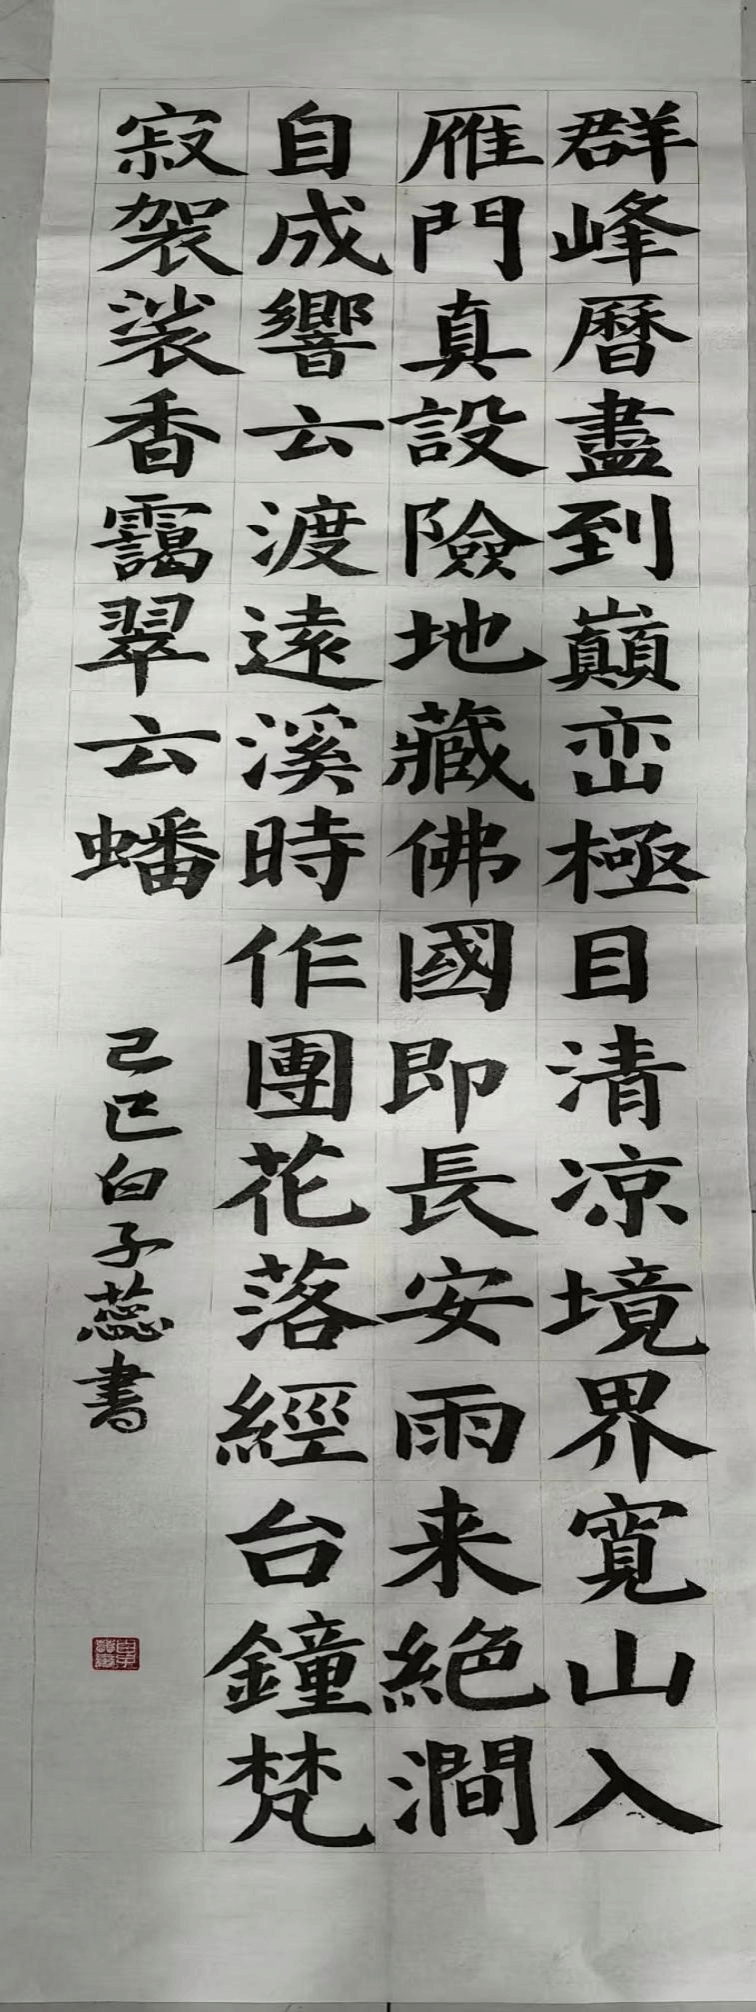 群峰曆盡到巔峦極目清凉境界寬山入
雁門真設險地藏佛國即長安雨来絕澗
自成響云渡遠溪時作團花落經台鐘梵
寂袈裟香靄翠云蟠
己巳白子蕊書